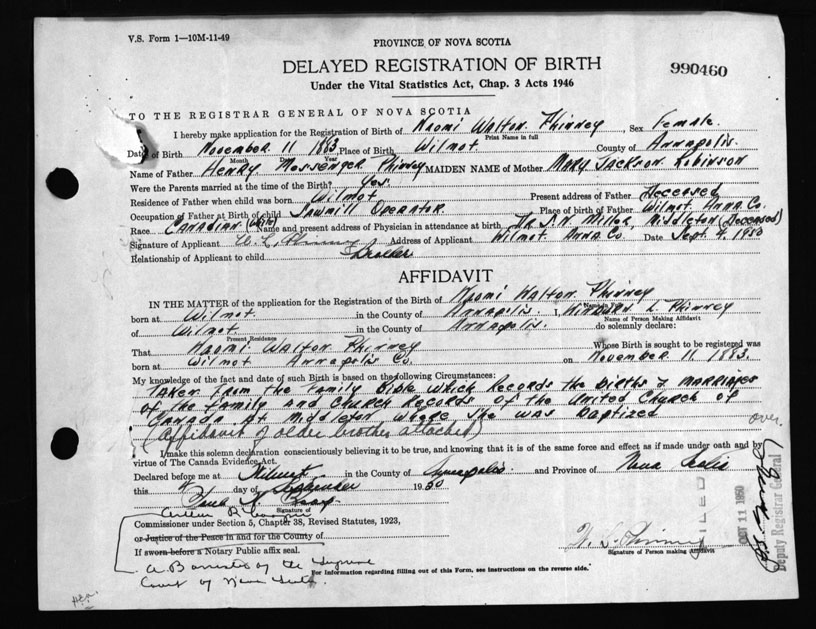 V.S. Form 1—10M-11-49
PROVINCE OF NOVA SCOTIA
DELAYED REGISTRATION OF BIRTH
990460
Under the Vital Statistics Act, Chap. 3 Acts 1946
TO THE REGISTRAR GENERAL OF NOVA SCOTIA
I hereby make application for the Registration of Birth of Naomi Walton Phinney, Sex Female.
Print Name in full
Date of Birth November 11 1883 Place of Birth Wilmot County of Annapolis.
Month Year
Name of Father Henry Messenger Phinney MAIDEN NAME of Mother Mary Jackson Robinson
Were the Parents married at the time of the Birth? Yes.
Residence of Father when child was born Wilmot Present address of Father Deceased
Occupation of Father at Birth of child Sawmill Operator. Place of birth of Father Wilmot, Anna Co.
Race Canadian (White) Name and present address of Physician in attendance at birth Middleton (Deceased)
Signature of Applicant Address of Applicant Wilmot Anna Co Date Sept. 4, 1950
Relationship of Applicant to child Brother
AFFIDAVIT
IN THE MATTER of the application for the Registration of Birth of Naomi Walton Phinney
born at Wilmot. in the County of Annapolis. I, L Phinney
Name of Person Making Affidavit
of Wilmot. in the County of Annapolis. do solemnly declare:
Present Residence
That Naomi Walton Phinney Whose Birth is sought to be registered was
born at Wilmot Annapolis Co. on November 11 1883.
My knowledge of the fact and date of such Birth is based on the following Circumstances:
Taken from the Family Bible which records the births & marriages
of the family and church records of the United Church of
Canada at Middleton where she was baptized
(Affidavit of older brother attached) over.
I make this solemn declaration conscientiously believing it to be true, and knowing that it is of the same force and effect as if made under oath and by
virtue of The Canada Evidence Act.
Declared before me at Wilmot in the County of Annapolis and Province of Nova Scotia
this 4 day of September 1950
Signature of
Commissioner under Section 5, Chapter 38, Revised Statutes, 1923,
or Justice of the Peace in and for the County of
If sworn before a Notary Public affix seal.
Signature of Person making Affidavit
A Barrister of the Supreme
Court of Nova Scotia
For information regarding filling out of this Form, see instructions on the reverse side.
FILED
11 1950
Deputy Registrar General